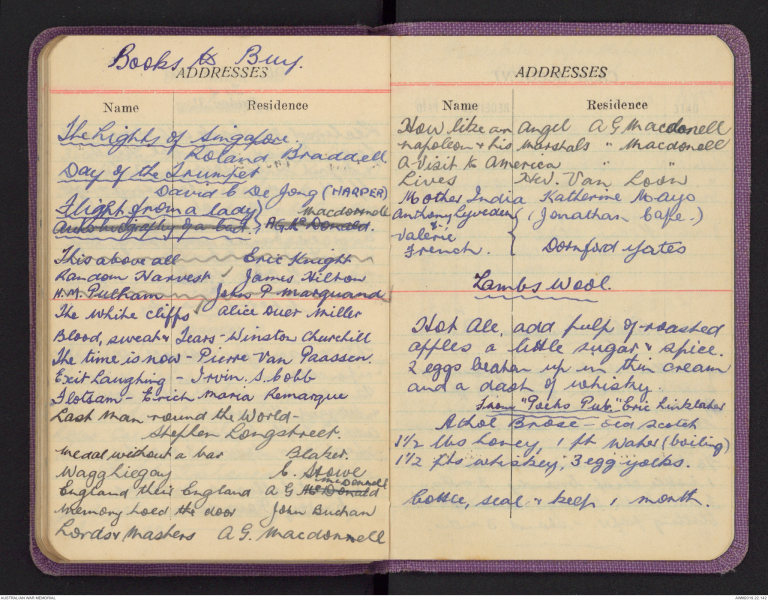 Books to Buy.
ADDRESSES
Name Residence
The Lights of Singapore.
Roland Braddell.
Day of the Trumpet
David C De Jong (HARPER)
Flight from a lady } Macdonnell
Autobiography of a cad. } A.G. McDonald.
This above all Eric Knight
Random Harvest James Hilton
H.M. Pulham John P Marquand
The White Cliffs Alice Duer Miller
Blood, sweat & Tears - Winston Churchill
The time is now - Pierre Van Paassen.
Exit Laughing - Irvin. S. Cobb
Flotsam - Erich Maria Remarque
Last Man round the World -
Stephen Longstreet.
Medal without a bar Blaker.
E. Stowe
Macdonnell
England their England A G McDonald
Memory hold the door John Buchan
Lords & Masters A.G. Macdonnell
ADDRESSES
Name Residence
How like an Angel A G Macdonell
Napoleon & his Marshals " Macdonell
A Visit to America " "
Lives H.W. Van Loon
Mother India Katherine Mayo
Anthony Lyveden } (Jonathan Cape.)
&
Valerie
French. } Dornford Yates
Lambs Wool.
Hot Ale, add pulp of roasted
apples a little sugar & spice.
2 eggs beaten up in thin cream
and a dash of whisky.
From "Poets Pub." Eric Linklater
Athol Brose - old scotch
1½ lbs honey, 1 pt water (boiling)
1½ pts whiskey, 3 egg yolks.
bottle, seal & keep 1 month.
AUSTRALIAN WAR MEMORIAL